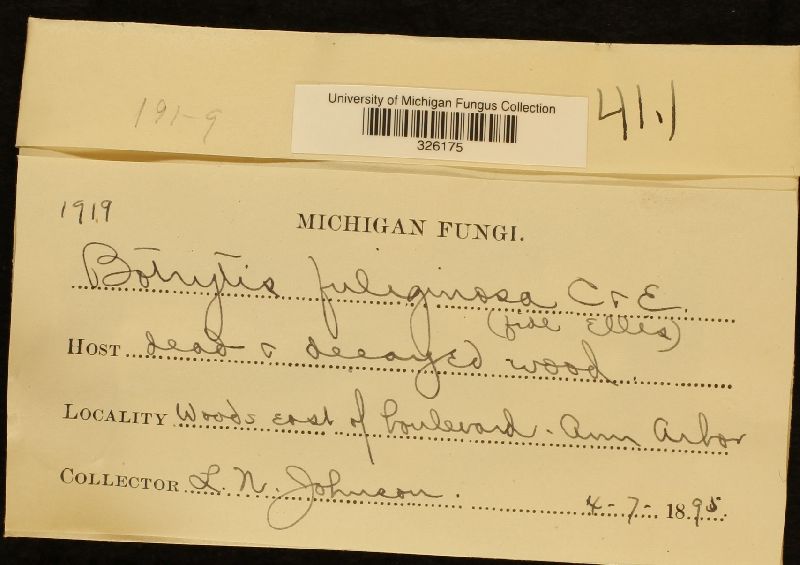 191-9
University of Michigan Fungus Collection
326175
41.1
1919
MICHIGAN FUNGI.
Botrytis fuliginosa C & E.
(fide Ellis)
HOST dead & decayed wood.
LOCALITY Woods east of boulevard. Ann Arbor
COLLECTOR L. N. Johnson. 4-7-1895.